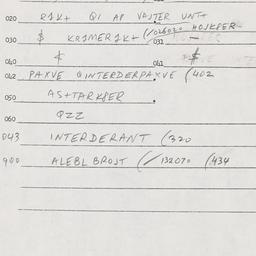 020 RIK+ QI AP VAJTER UNT+
030 $ KRIMERIK+ (/026020 HOJKPER
031 —
040 $ 041 $
042 PAXVE QINTERDERPAXVE (402
050 AS+TARKPER
060 QZZ
043 INTERDERANT (320
900 ALEBL BROJT (/132070 (434